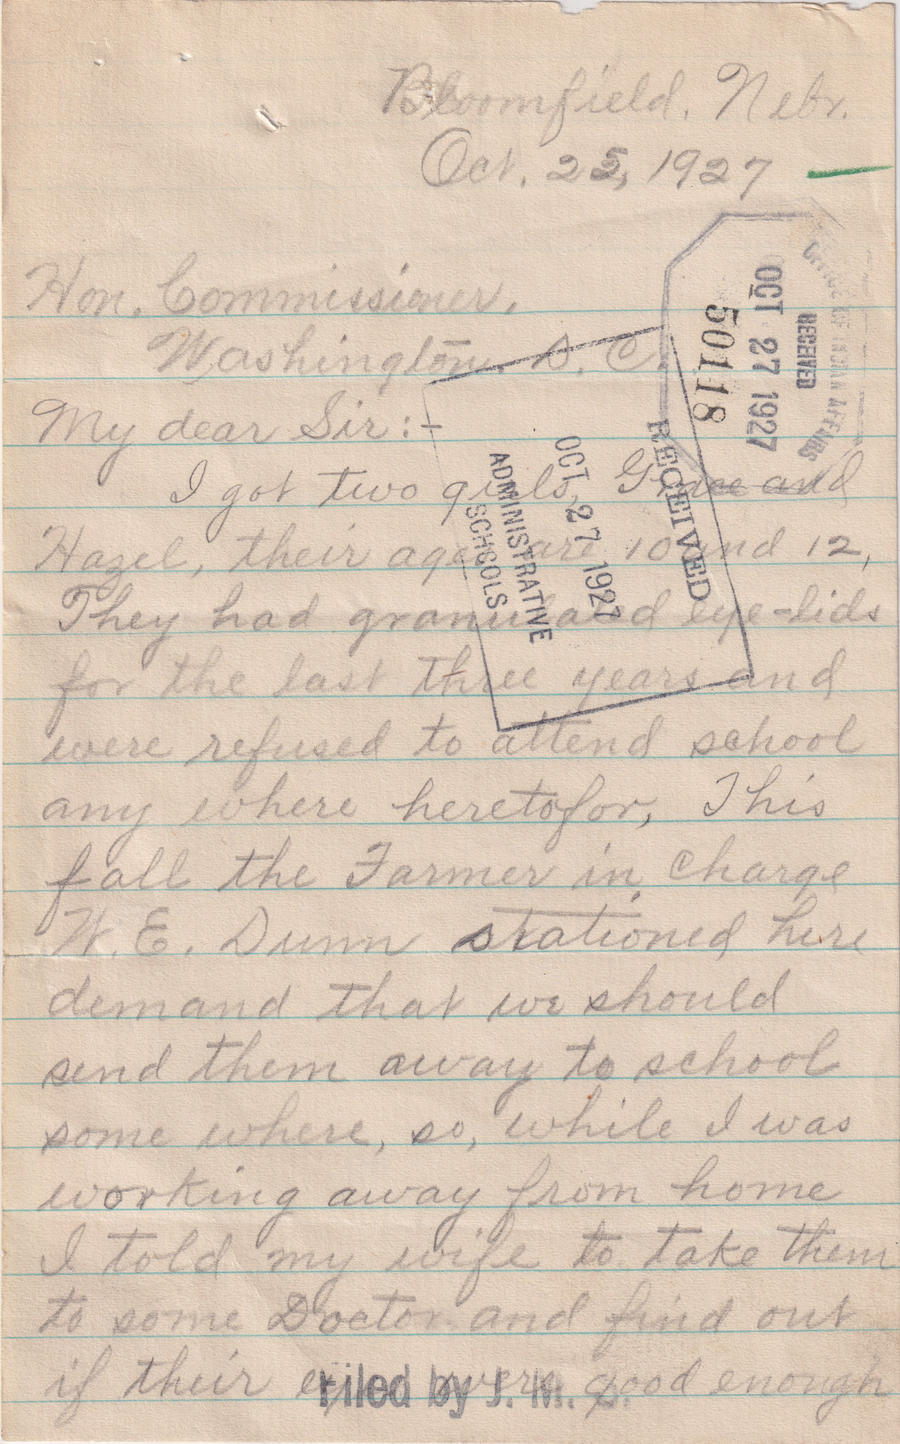 Bloomfield, Nebr.
Oct. 25, 1927
Hon. Commissioner,
Washington, D. C.
My dear Sir:-
I got two girls, Grace and
Hazel, their age are 10 and 12,
They had granulated eye-lids
for the last three years and
were refused to attend school
any where heretofor, This
fall the Farmer in Charge
W. E. Dunn stationed here
demand that we should
send them away to school
some where, so, while I was
working away from home
I told my wife to take them
to some Doctor and find out
if their eyes were good enough
OFFICE OF INDIAN AFFAIRS
RECEIVED
OCT 27 1927
50118
RECEIVED
OCT 27 1927
ADMINISTRATIVE
SCHOOLS
Filed by J. M.